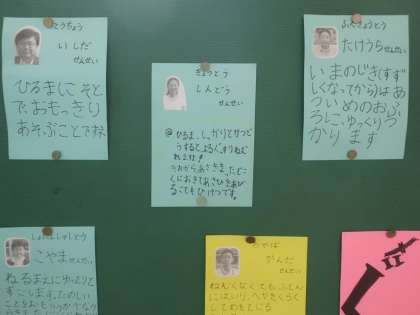 こうちょう
いしだ
せんせい
ひるまにそと
で、おもっきり
あそぶことですね
きょうとう
しんどう
せんせい
ひるま、しっかりとかつど
うすると、よるぐっすりねむ
れます!
くにおきてあさひをあび
ることもひけつです。
ふくこうとう
たけうち
せんせい
いまのじき(すず
しくなってから)はあ
ついめのおふ
ろに、ゆっくりつ
かります
こやま
せんせい
ねるまえにゆったりと
すごします。たのしい
せんせい
ねむくなくてもふとん
にはいり、へやをくらく
してめをとじる